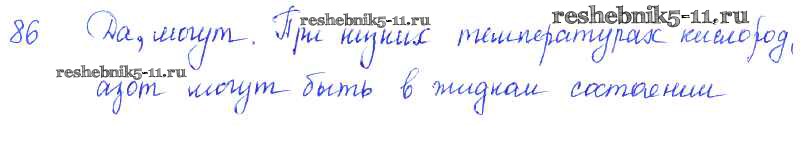 reshebnik5-11.ru reshebnik5-11.ru
86 Да, могут. При низких температурах кислород,
reshebnik5-11.ru
азот могут быть в жидком состоянии